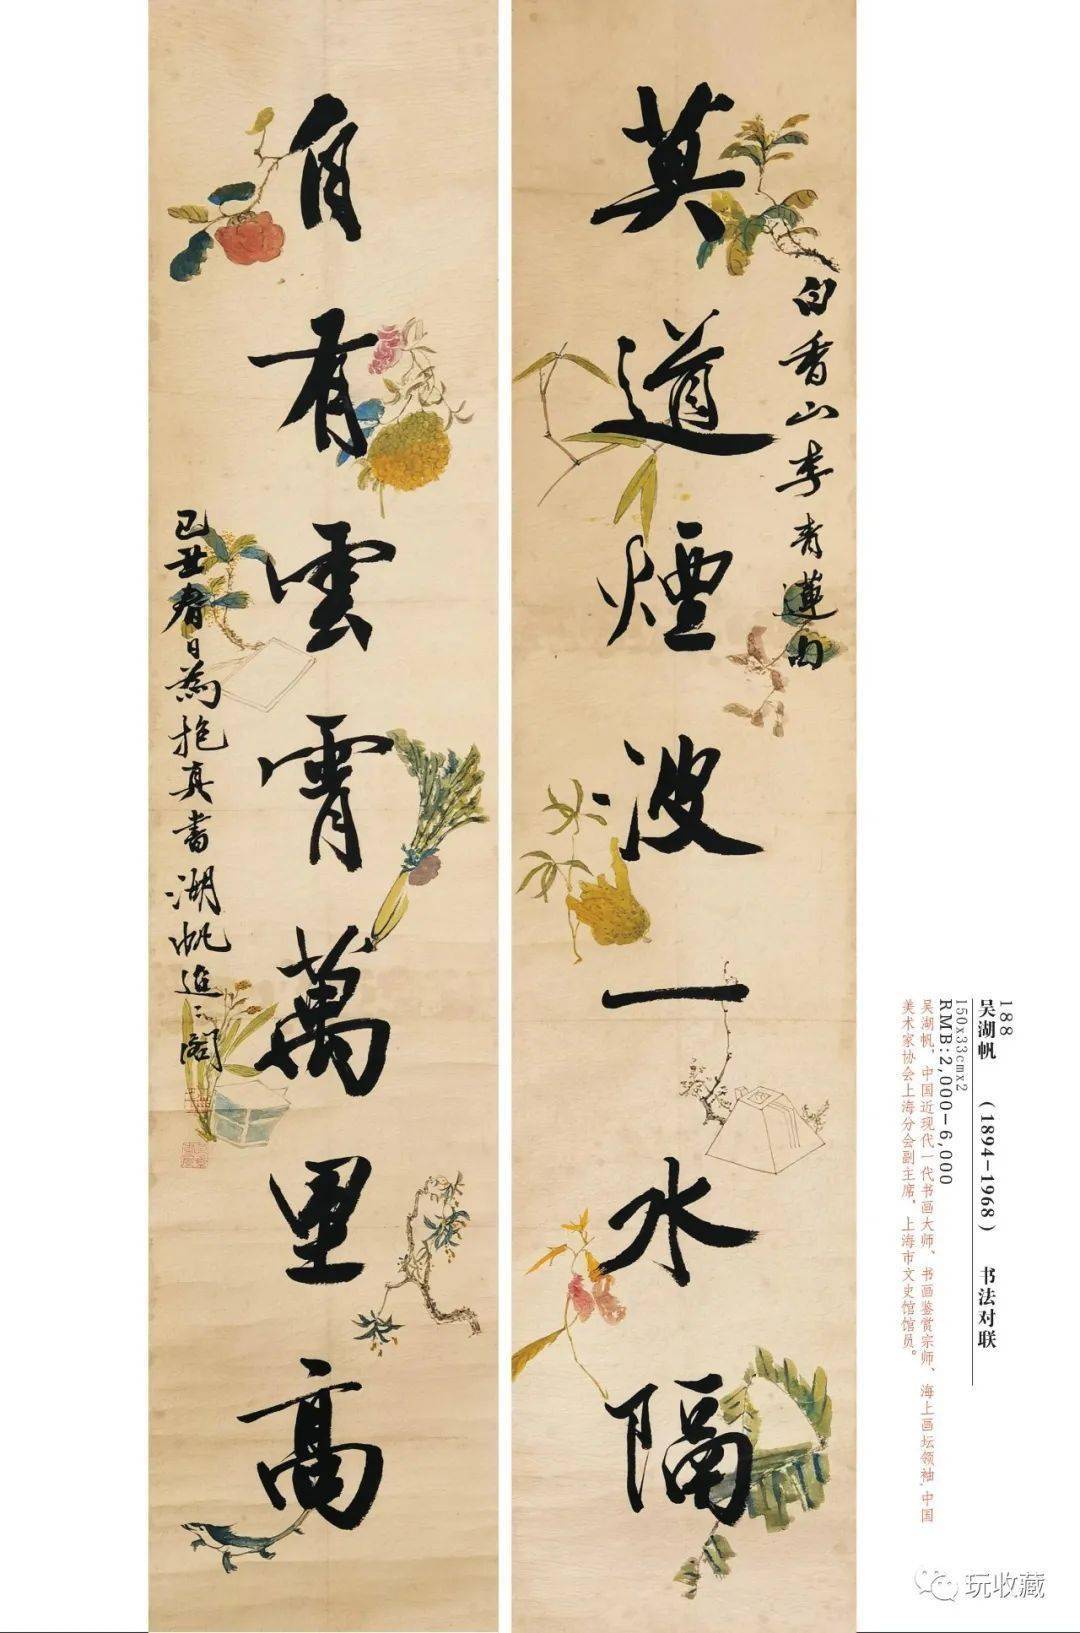 白香山李青蓮句
莫道煙波一水隔
自有雲霄萬里高
己丑春日為抱真書湖帆迢〻閣
188
吴湖帆 (1894-1968) 书法对联
150x33cmx2
RMB:2,000-6,000
吴湖帆，中国近现代一代书画大师、书画鉴赏宗师、海上画坛领袖,中国
美术家协会上海分会副主席，上海市文史馆馆员。
玩收藏